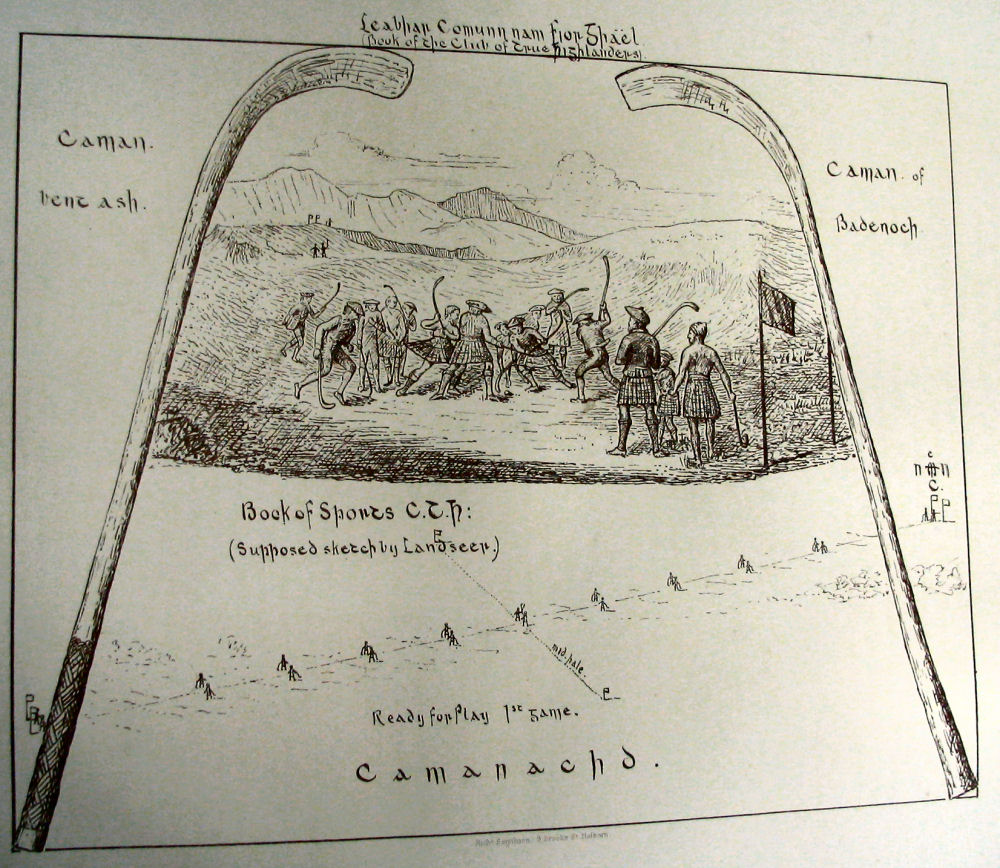 Leabhar Comunn nam Fior Ghäel
(Book of the Club of True Highlanders)
Caman.
bent ash.
Caman of
Badenoch
Book of Sports C.T.H:
(Supposed sketch by Landseer.)
mid. hale.
Ready for Play 1st game.
Camanachd.